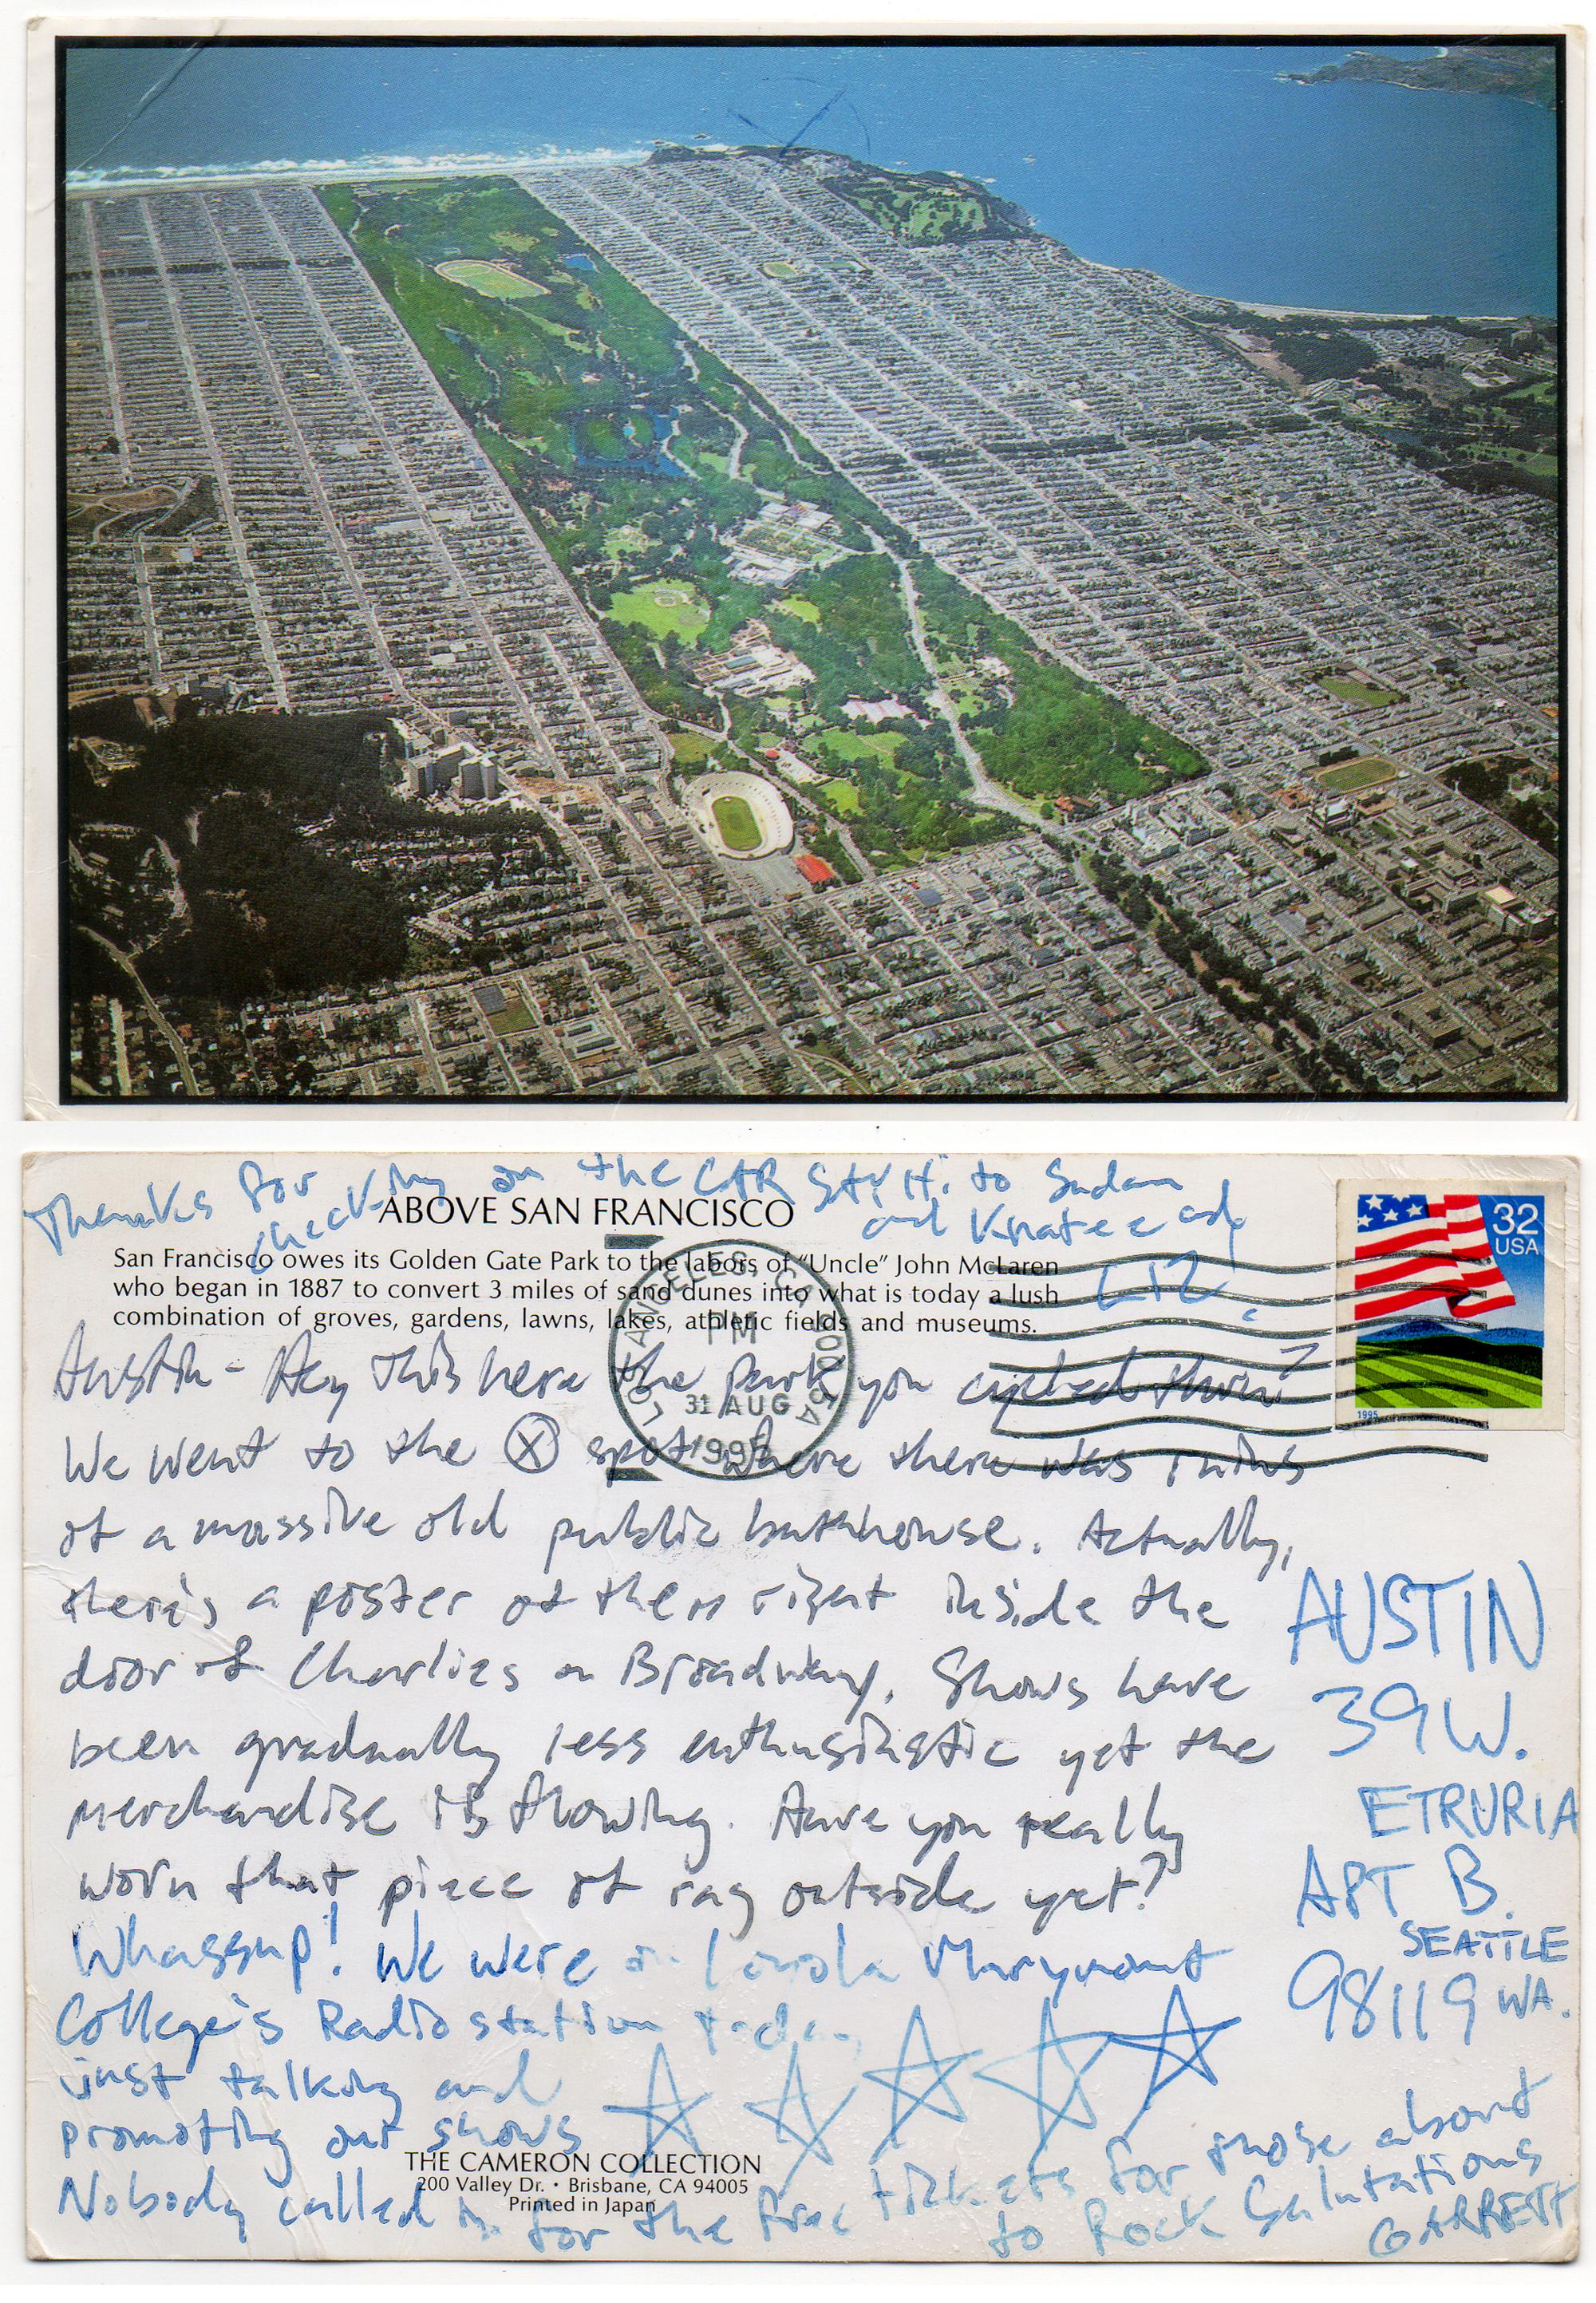 Thanks for checking on the CAR
to Sudan
and
LIZ.
ABOVE SAN FRANCISCO
San Francisco owes its Golden Gate Park to the labors of “Uncle” John McLaren
who began in 1887 to convert 3 miles of sand dunes into what is today a lush
combination of groves, gardens, lawns, lakes, athletic fields and museums.
32
USA
1995
LOS ANGELES, CA
PM
31 AUG
Austin - Hey This here the park you cycled thru?
We went to the X spot where there was ruins
of a massive old public bathhouse. Actually,
there's a poster of them right inside the
door of Charlies on Broadway. Shows have
been gradually less enthusiastic yet the
merchandise is flowing. Have you really
worn that piece of rag outside yet?
Whassup! We were on Loyola Marymount
College's Radio station today
just talking and
promoting our shows
Nobody called in for the free tickets for those about
to Rock Salutations
GARRETT
AUSTIN
39 W.
ETRURIA
APT B.
SEATTLE
98119 WA.
THE CAMERON COLLECTION
200 Valley Dr. • Brisbane, CA 94005
Printed in Japan